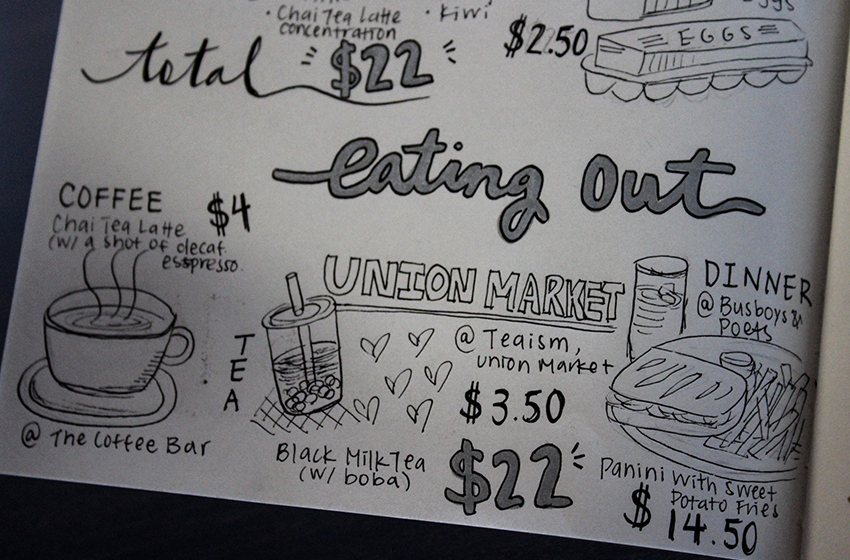 · Chai Tea Latte
concentration
· Kiwi
$2.50
EGGS
total $22
eating out
COFFEE
$4
Chai Tea Latte
(w/ a shot of decaf
esspresso.
@ The Coffee Bar
UNION MARKET
TEA
@ Teaism,
Union Market
$3.50
Black Milk Tea
(w/ boba)
$22
DINNER
@ Busboys &
Poets
Panini with sweet
Potato Fries
$14.50